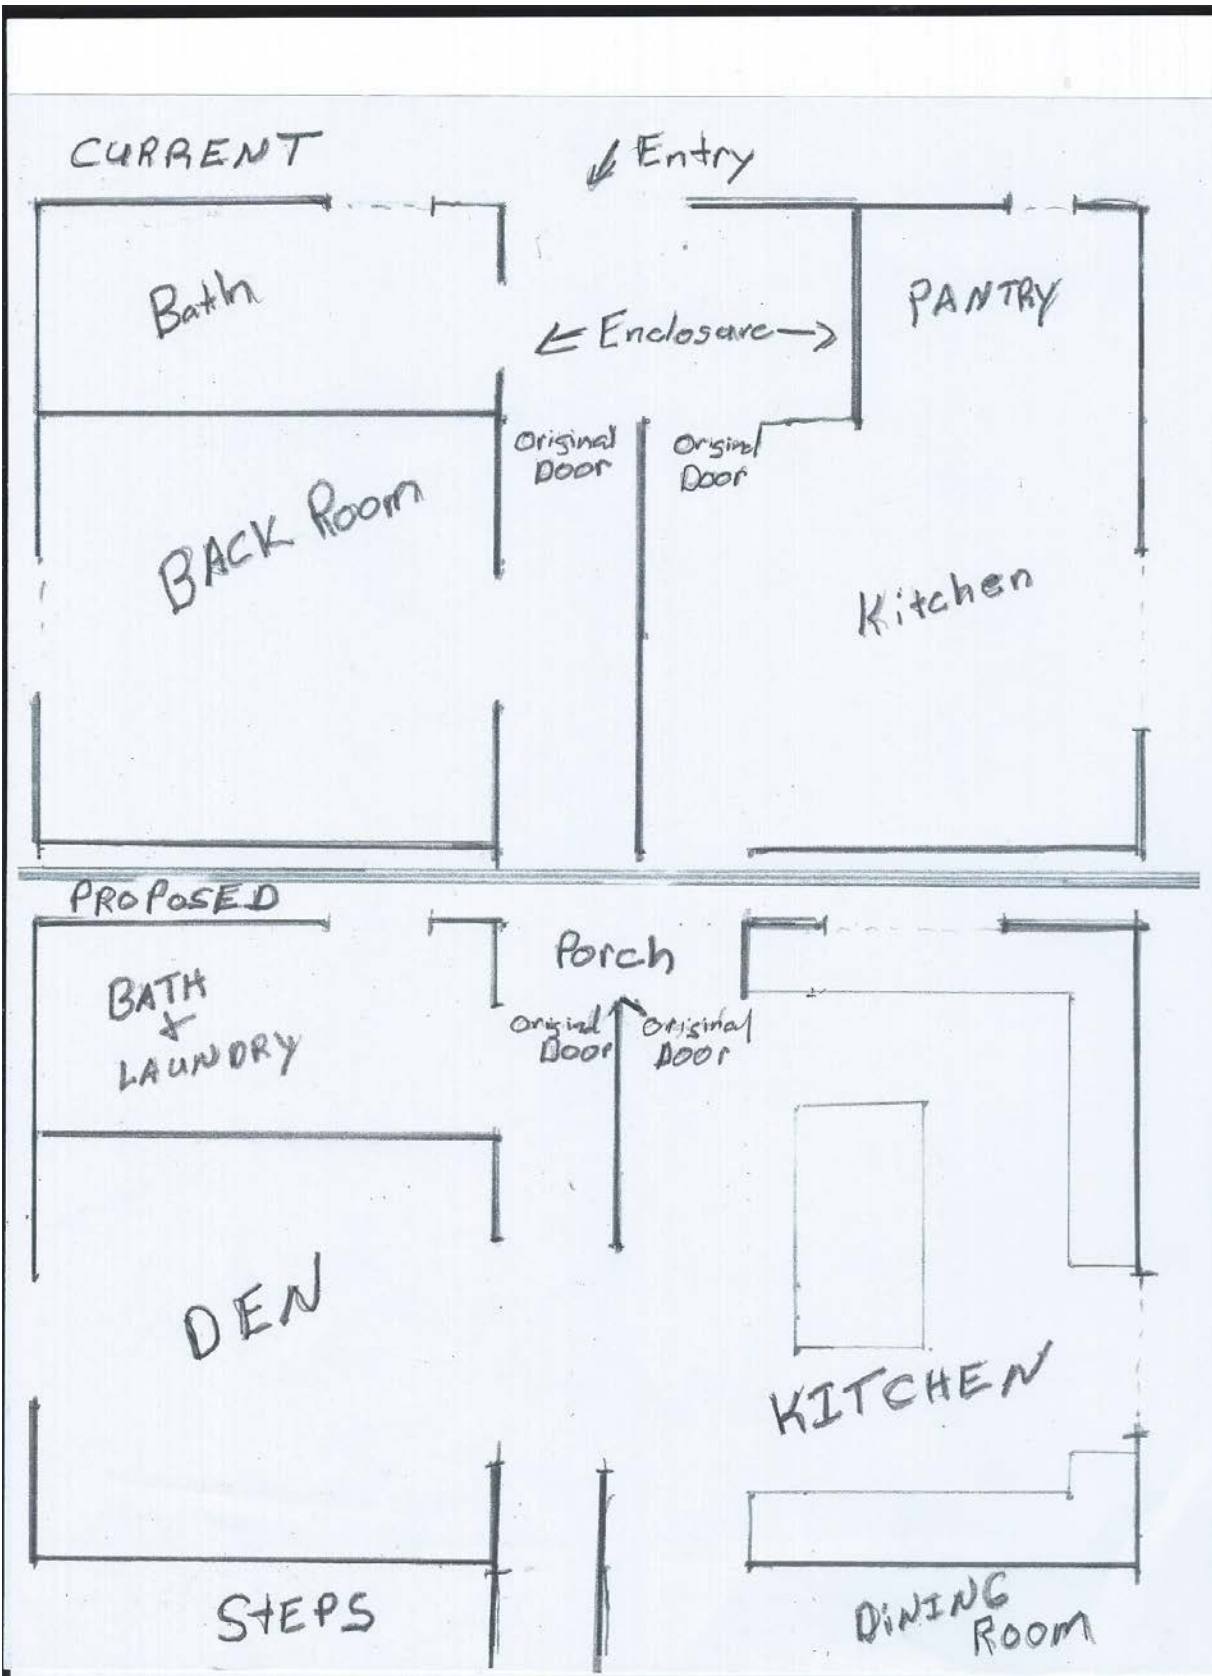 CURRENT
Entry
Bath
PANTRY
Enclosure
Original
Door
Original
Door
BACK Room
Kitchen
PROPOSED
Porch
BATH
+
LAUNDRY
Original
Door
Original
Door
DEN
KITCHEN
STEPS
DINING
ROOM